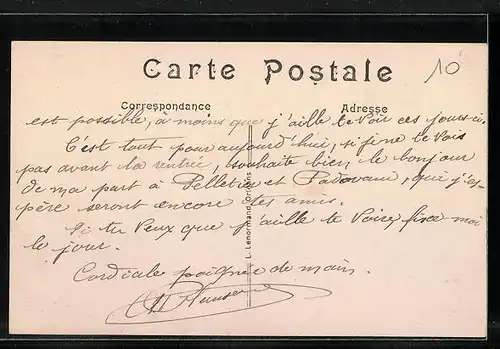 Carte Postale
10
Correspondance
Adresse
est possible, à moins que j'aille te voir ces jours-ci.
C'est tout pour aujourd'hui, si je ne te vois
pas avant la rentrée, souhaite bien le bonjour
de ma part à Pelletier et Padovani, qui j'es-
père seront encore tes amis.
Si tu veux que j'aille te voir, fixe moi
le jour.
Cordiale poignée de main.
L. Lenormand, Orléans